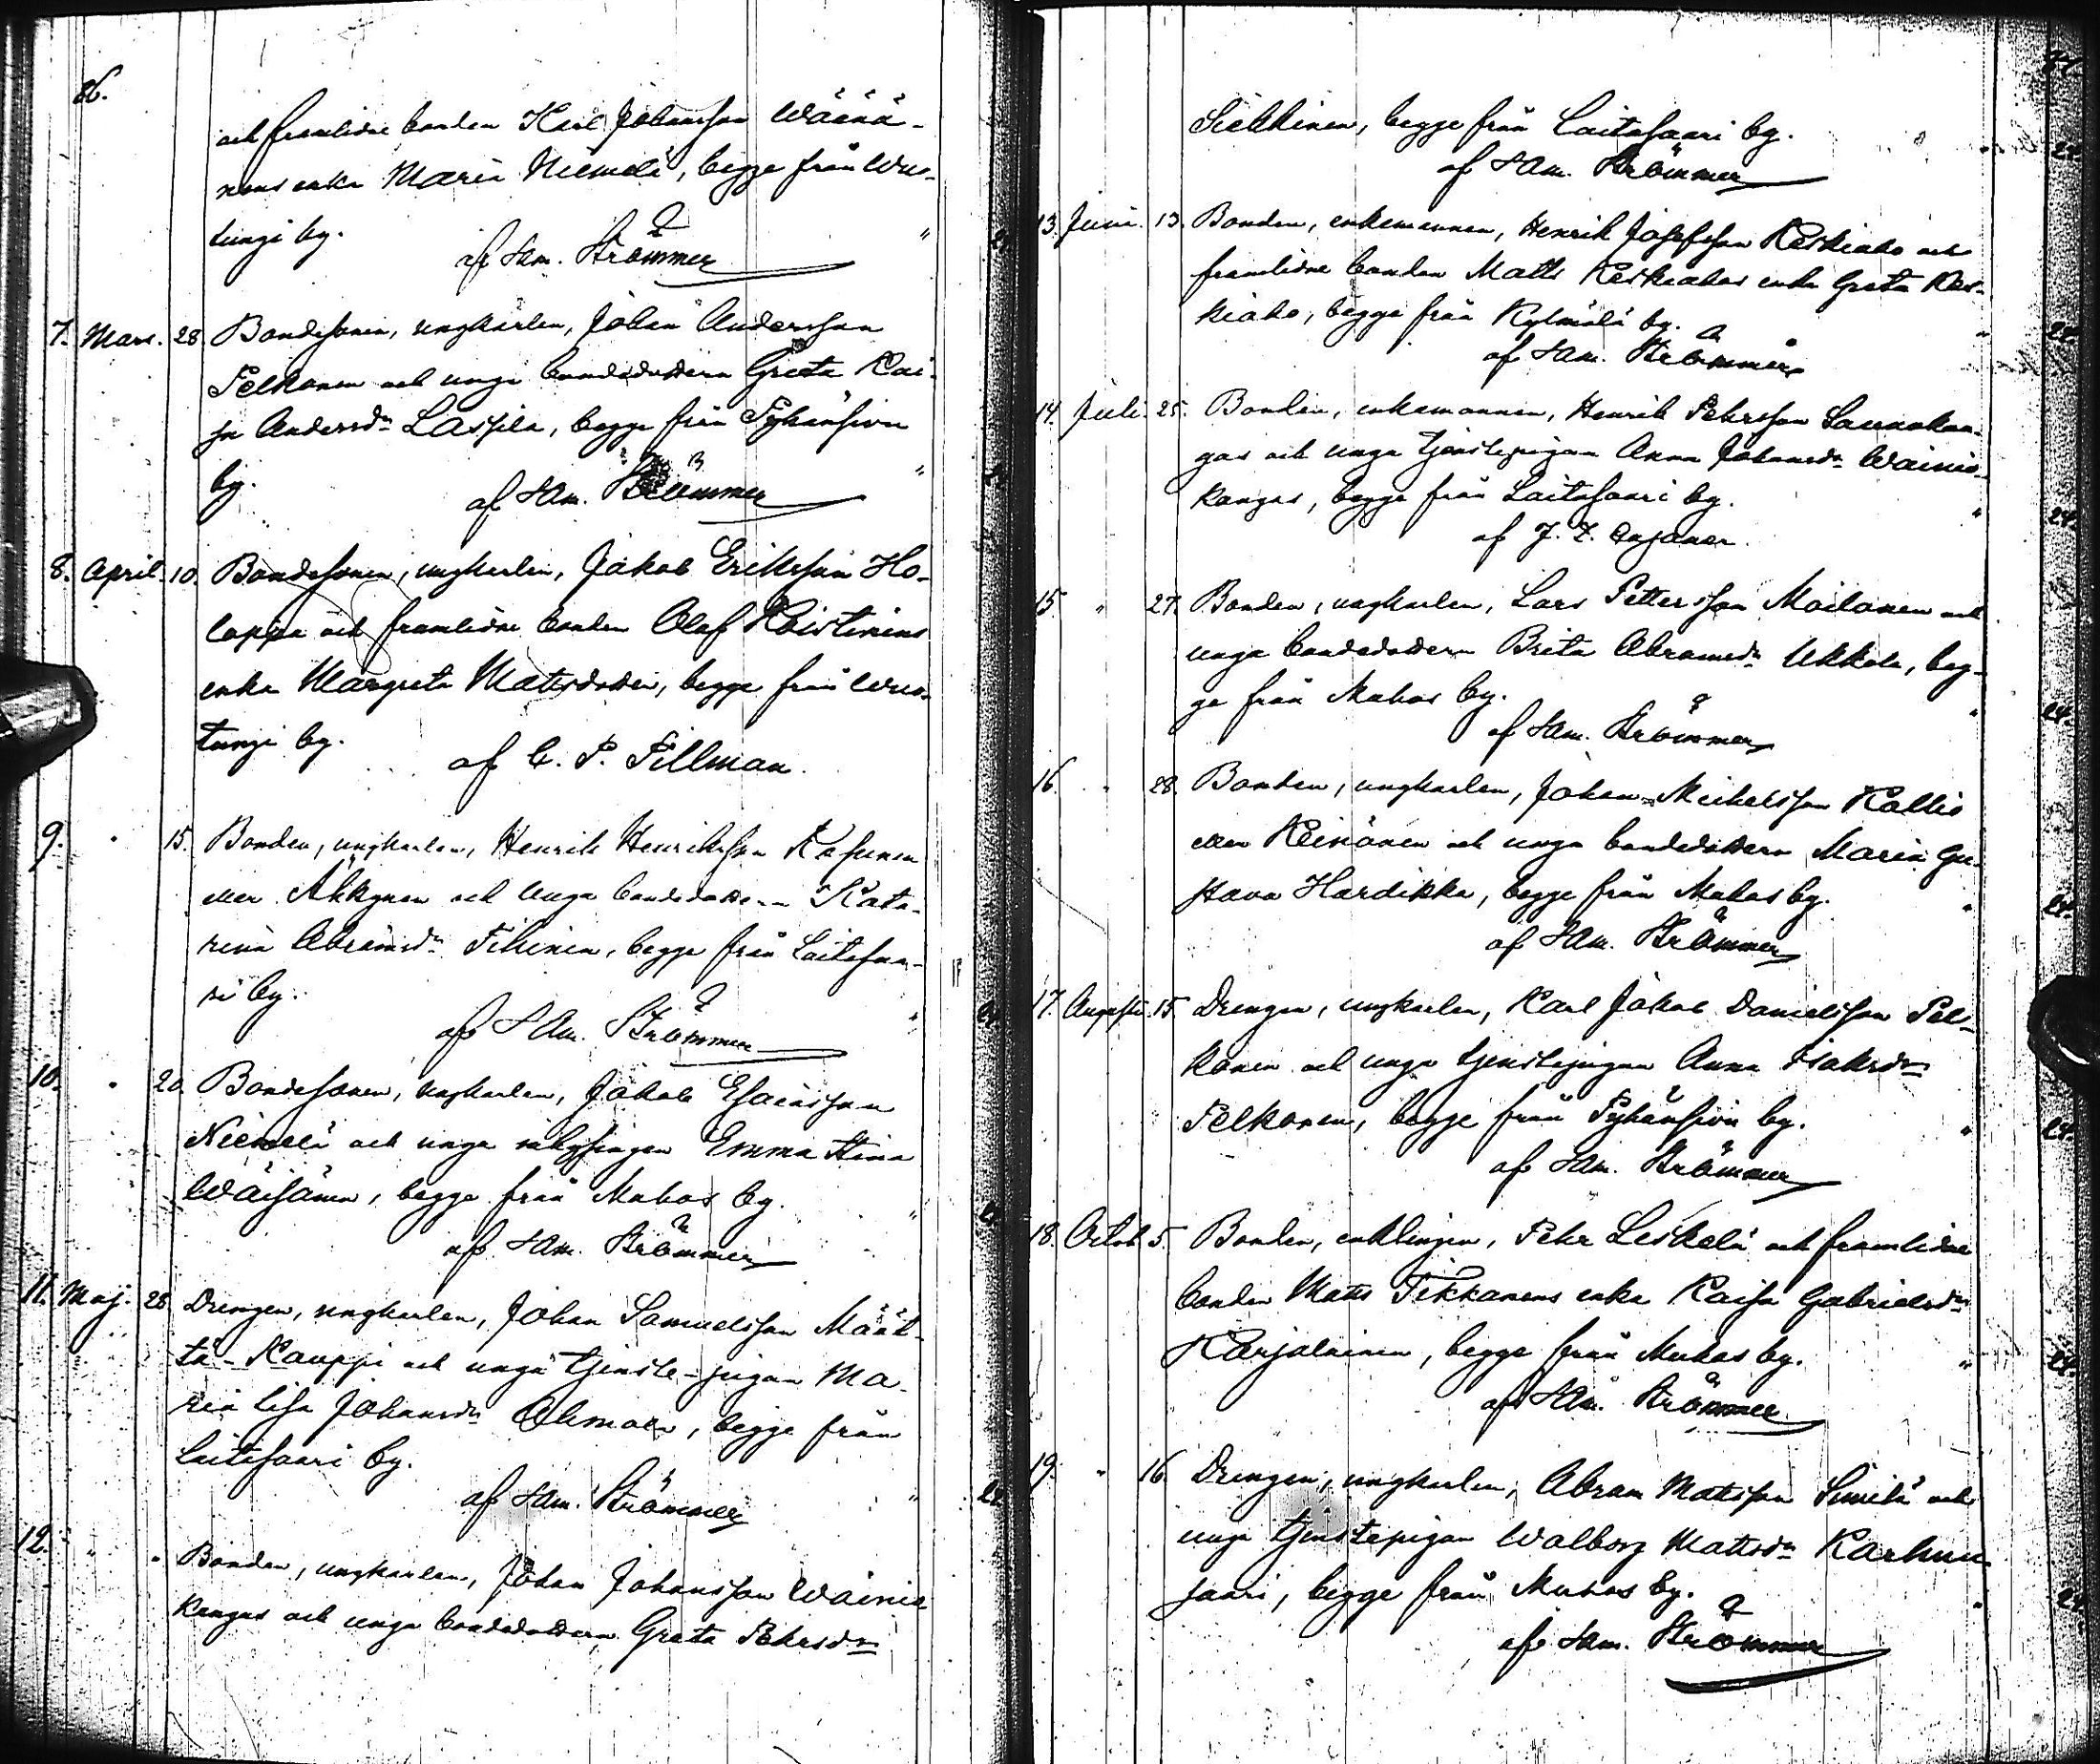 86.
och framlidne bonden Karl Johansson Wäänä-
nens enka Maria Niemelä, begge från Wuo-
tungi by.
af Sam. Strömmer
7. Mars. 28. Bondesonen, ungkarlen, Johan Andersson
Pelkonen och unga bondedottern Greta Kai-
sa Andersdr Lassila, begge från Pyhänsivu
by.
af Sam. Strömmer
8. April. 10. Bondesonen, ungkarlen, Jakob Eriksson Ho-
loppa och framlidne bonden Olof Koistinens
enka Margreta Matsdotter, begge från Wuo-
tungi by.
af C. P. Tillman.
9. " 15. Bonden, ungkarlen, Henrik Henriksson
eller Äkkynen och unga bondedottern Kata-
rina Abramsdr Tihinen, begge från Laitasaa-
ri by.
af Sam. Strömmer
10. " 20. Bondesonen, ungkarlen, Jakob Esaiasson
Niemelä och unga Emma Stina
Wäisänen, begge från Muhos by.
af Sam. Strömmer
11. Maj. 28. Drengen, ungkarlen, Johan Samuelsson Määt-
tä-Kauppi och unga tjenste-pigan Ma-
ria Lisa Johansdr begge från
Laitasaari by.
af Sam. Strömmer
12. " " Bonden, ungkarlen, Johan Johansson Wainio
kangas och unga bondedottern Greta Pehrsdr
87
Siekkinen, begge från Laitasaari by.
af Sam. Strömmer
13. Juni. 13. Bonden, enkemannen, Henrik Josefsson Keskiaho och
framlidne bonden Matts Keskiahos enka Greta Kes-
kiaho, begge från Kylmälä by.
af Sam. Strömmer
14. Juli. 25. Bonden, enkemannen, Henrik Pehrsson Saunakan-
gas och unga tjenstepigan Anna Johansdr Wainio-
kangas, begge från Laitasaari by.
af J. F. Cajaner.
15 " 27. Bonden, ungkarlen, Lars Pettersson Moilanen och
unga bondedottern Brita Abramsdr Ukkola, beg-
ge från Muhos by.
af Sam. Strömmer
16. " 28. Bonden, ungkarlen, Johan Michelsson Kallio
eller Keinänen och unga bondedottern Maria Gu-
stava Hardikka, begge från Muhos by.
af Sam. Strömmer
17. Augusti. 15. Drengen, ungkarlen, Karl Jakob Danielsson Pel-
konen och unga tjenstepigan Anna Isaksdr
Pelkonen, begge från Pyhänsivu by.
af Sam. Strömmer
18. Octob. 5. Bonden, enklingen, Pehr Leskelä och framlidne
bonden Matts Tikkanens enka Kaisa Gabrielsdr
Karjalainen, begge från Muhos by.
af Sam. Strömmer
19. " 16. Drengen, ungkarlen, Abram Matsson Similä och
unga tjenstepigan Walborg Mattsdr Karhun
saari, begge från Muhos by.
af Sam. Strömmer